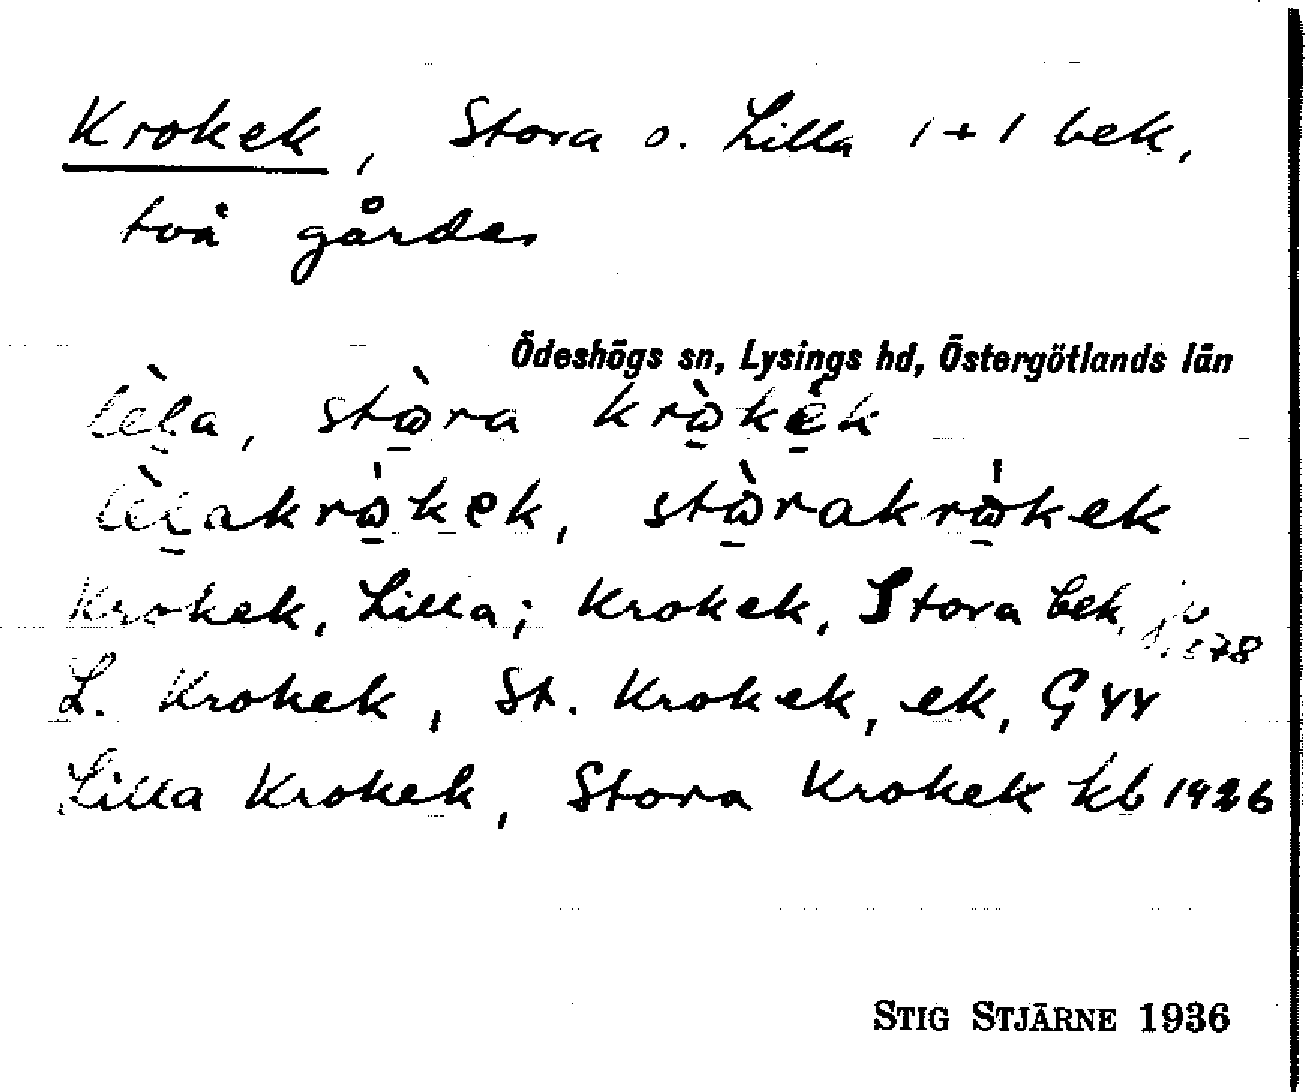 Krokek, Stora o. Lilla 1+1 bek,
två gårdar
Ödeshögs sn, Lysings hd, Östergötlands län
lèla, stòra kròkèk
lèlakròkek, stòrakròkek
Krokek, Lilla; Krokek, Stora bek,
L. Krokek, St. Krokek, ek,
Lilla Krokek, Stora Krokek kb 1926
STIG STJÄRNE 1936